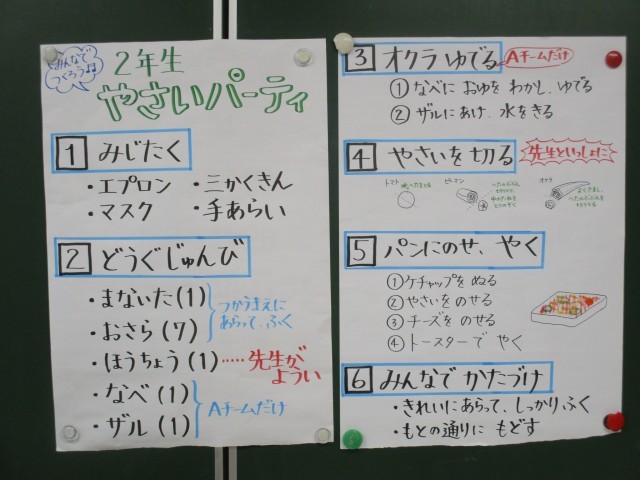 みんなで
つくろうよ♪
2年生
やさいパーティ
1 みじたく
・エプロン ・三かくきん
・マスク ・手あらい
2 どうぐじゅんび
・まないた(1)
・おさら(7)
つかうまえに
あらって、ふく
・ほうちょう(1)……先生が
ようい
・なべ(1)
・ザル(1)
Aチームだけ
3 オクラ ゆでる Aチームだけ
① なべに おゆを わかし、ゆでる
② ザルにあけ、水をきる
4 やさいを切る 先生といっしょに
トマト
ピーマン
オクラ
5 パンにのせ、やく
①ケチャップを ぬる
②やさいを のせる
③チーズを のせる
④トースターで やく
6 みんなで かたづけ
・きれいにあらって、しっかりふく
・もとの通りに もどす